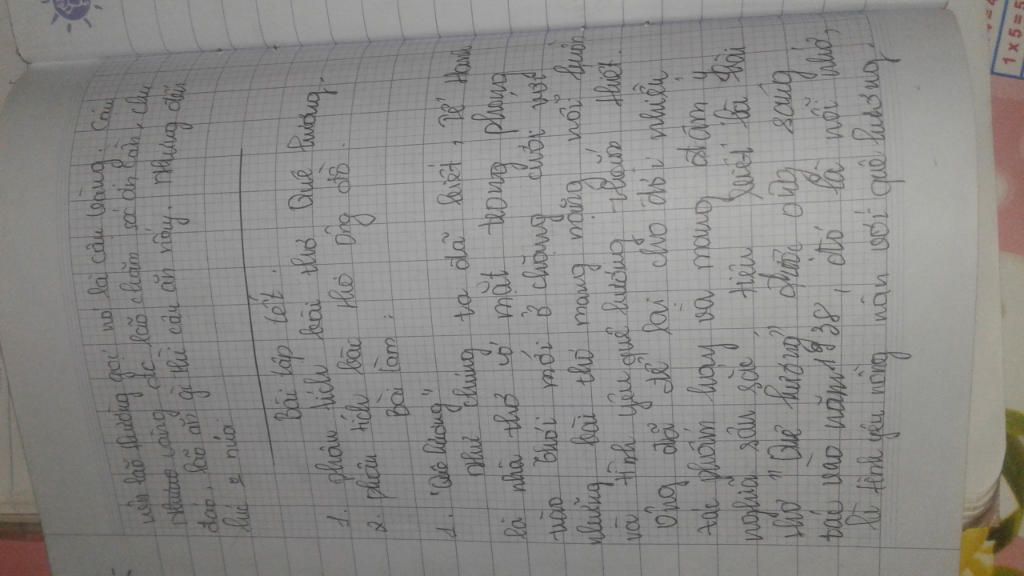 nên lão thường gọi nó là cậu Vàng. Cậu
Vàng đc lão chăm sóc cẩn thận, cho
lão ăn gì thì cậu ăn nấy. Nhưng đến
Bài tập tết.
1. phân tích bài thơ Quê hương.
2. phân tích bài thơ Ông đồ.
Bài làm:
1. "Quê hương"
Như chúng ta đã biết, Tế Hanh
là nhà thơ có mặt trong phong
trào Thơ mới ở chặng cuối với
những bài thơ mang nặng nỗi buồn
và tình yêu quê hương tha thiết.
Ông đã để lại cho đời nhiều
tác phẩm hay và mang đậm ý
nghĩa sâu sắc, tiêu biểu là bài
thơ "Quê hương" được ông sáng
tác vào năm 1938, đó là nỗi nhớ,
là tình yêu nồng nàn với quê hương,
1 x 5 = 5